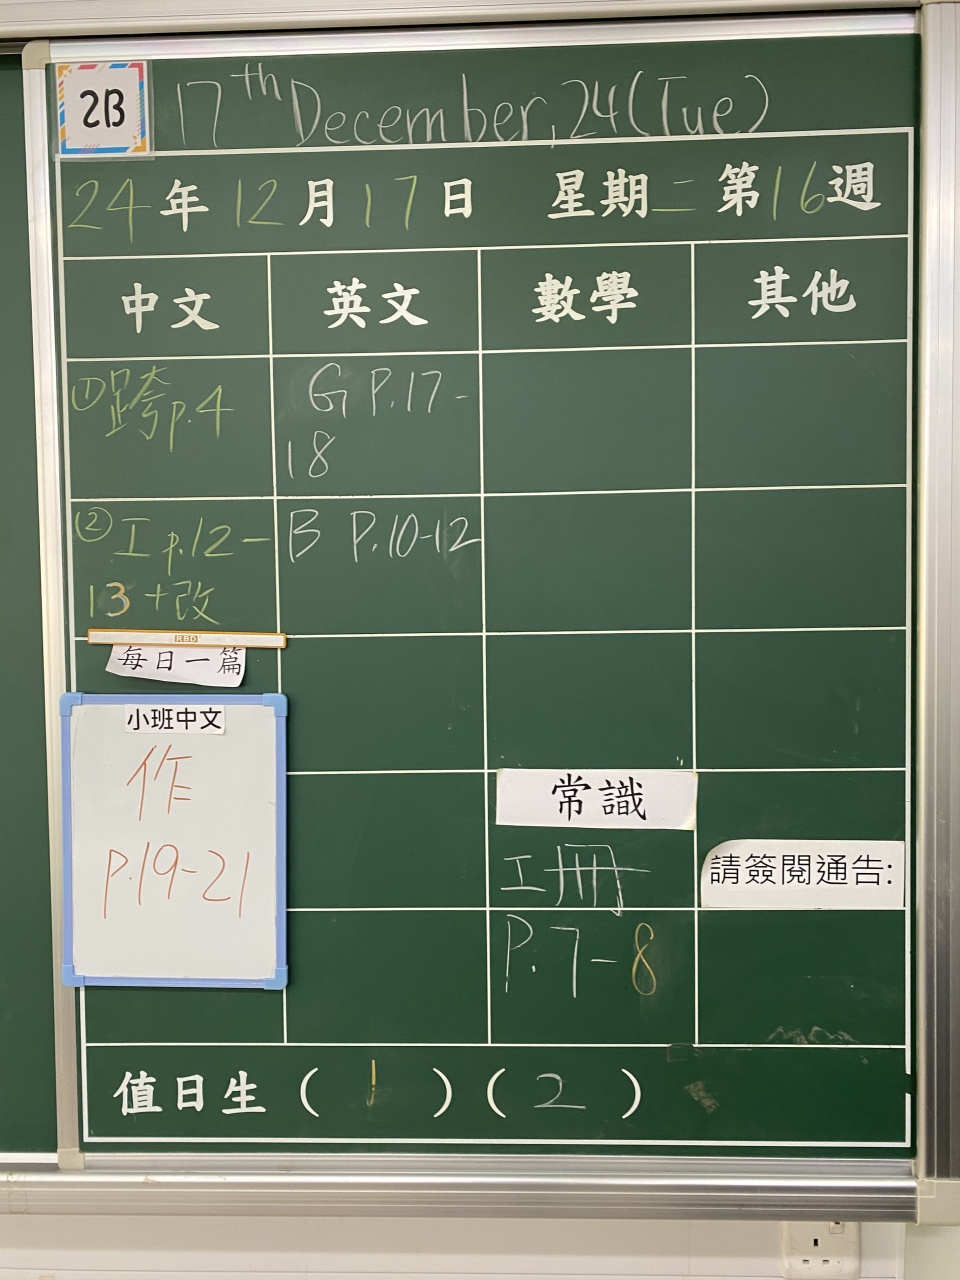 2B
17th December, 24 (Tue)
24年12月17日 星期二 第16週
中文 英文 數學 其他
①跨p.4
G P.17-
18
②工p.12-
13+改
B P.10-12
RBD
每日一篇
小班中文
作
P.19-21
常識
工冊
P.7-8
請簽閱通告:
值日生 ( 1 ) ( 2 )